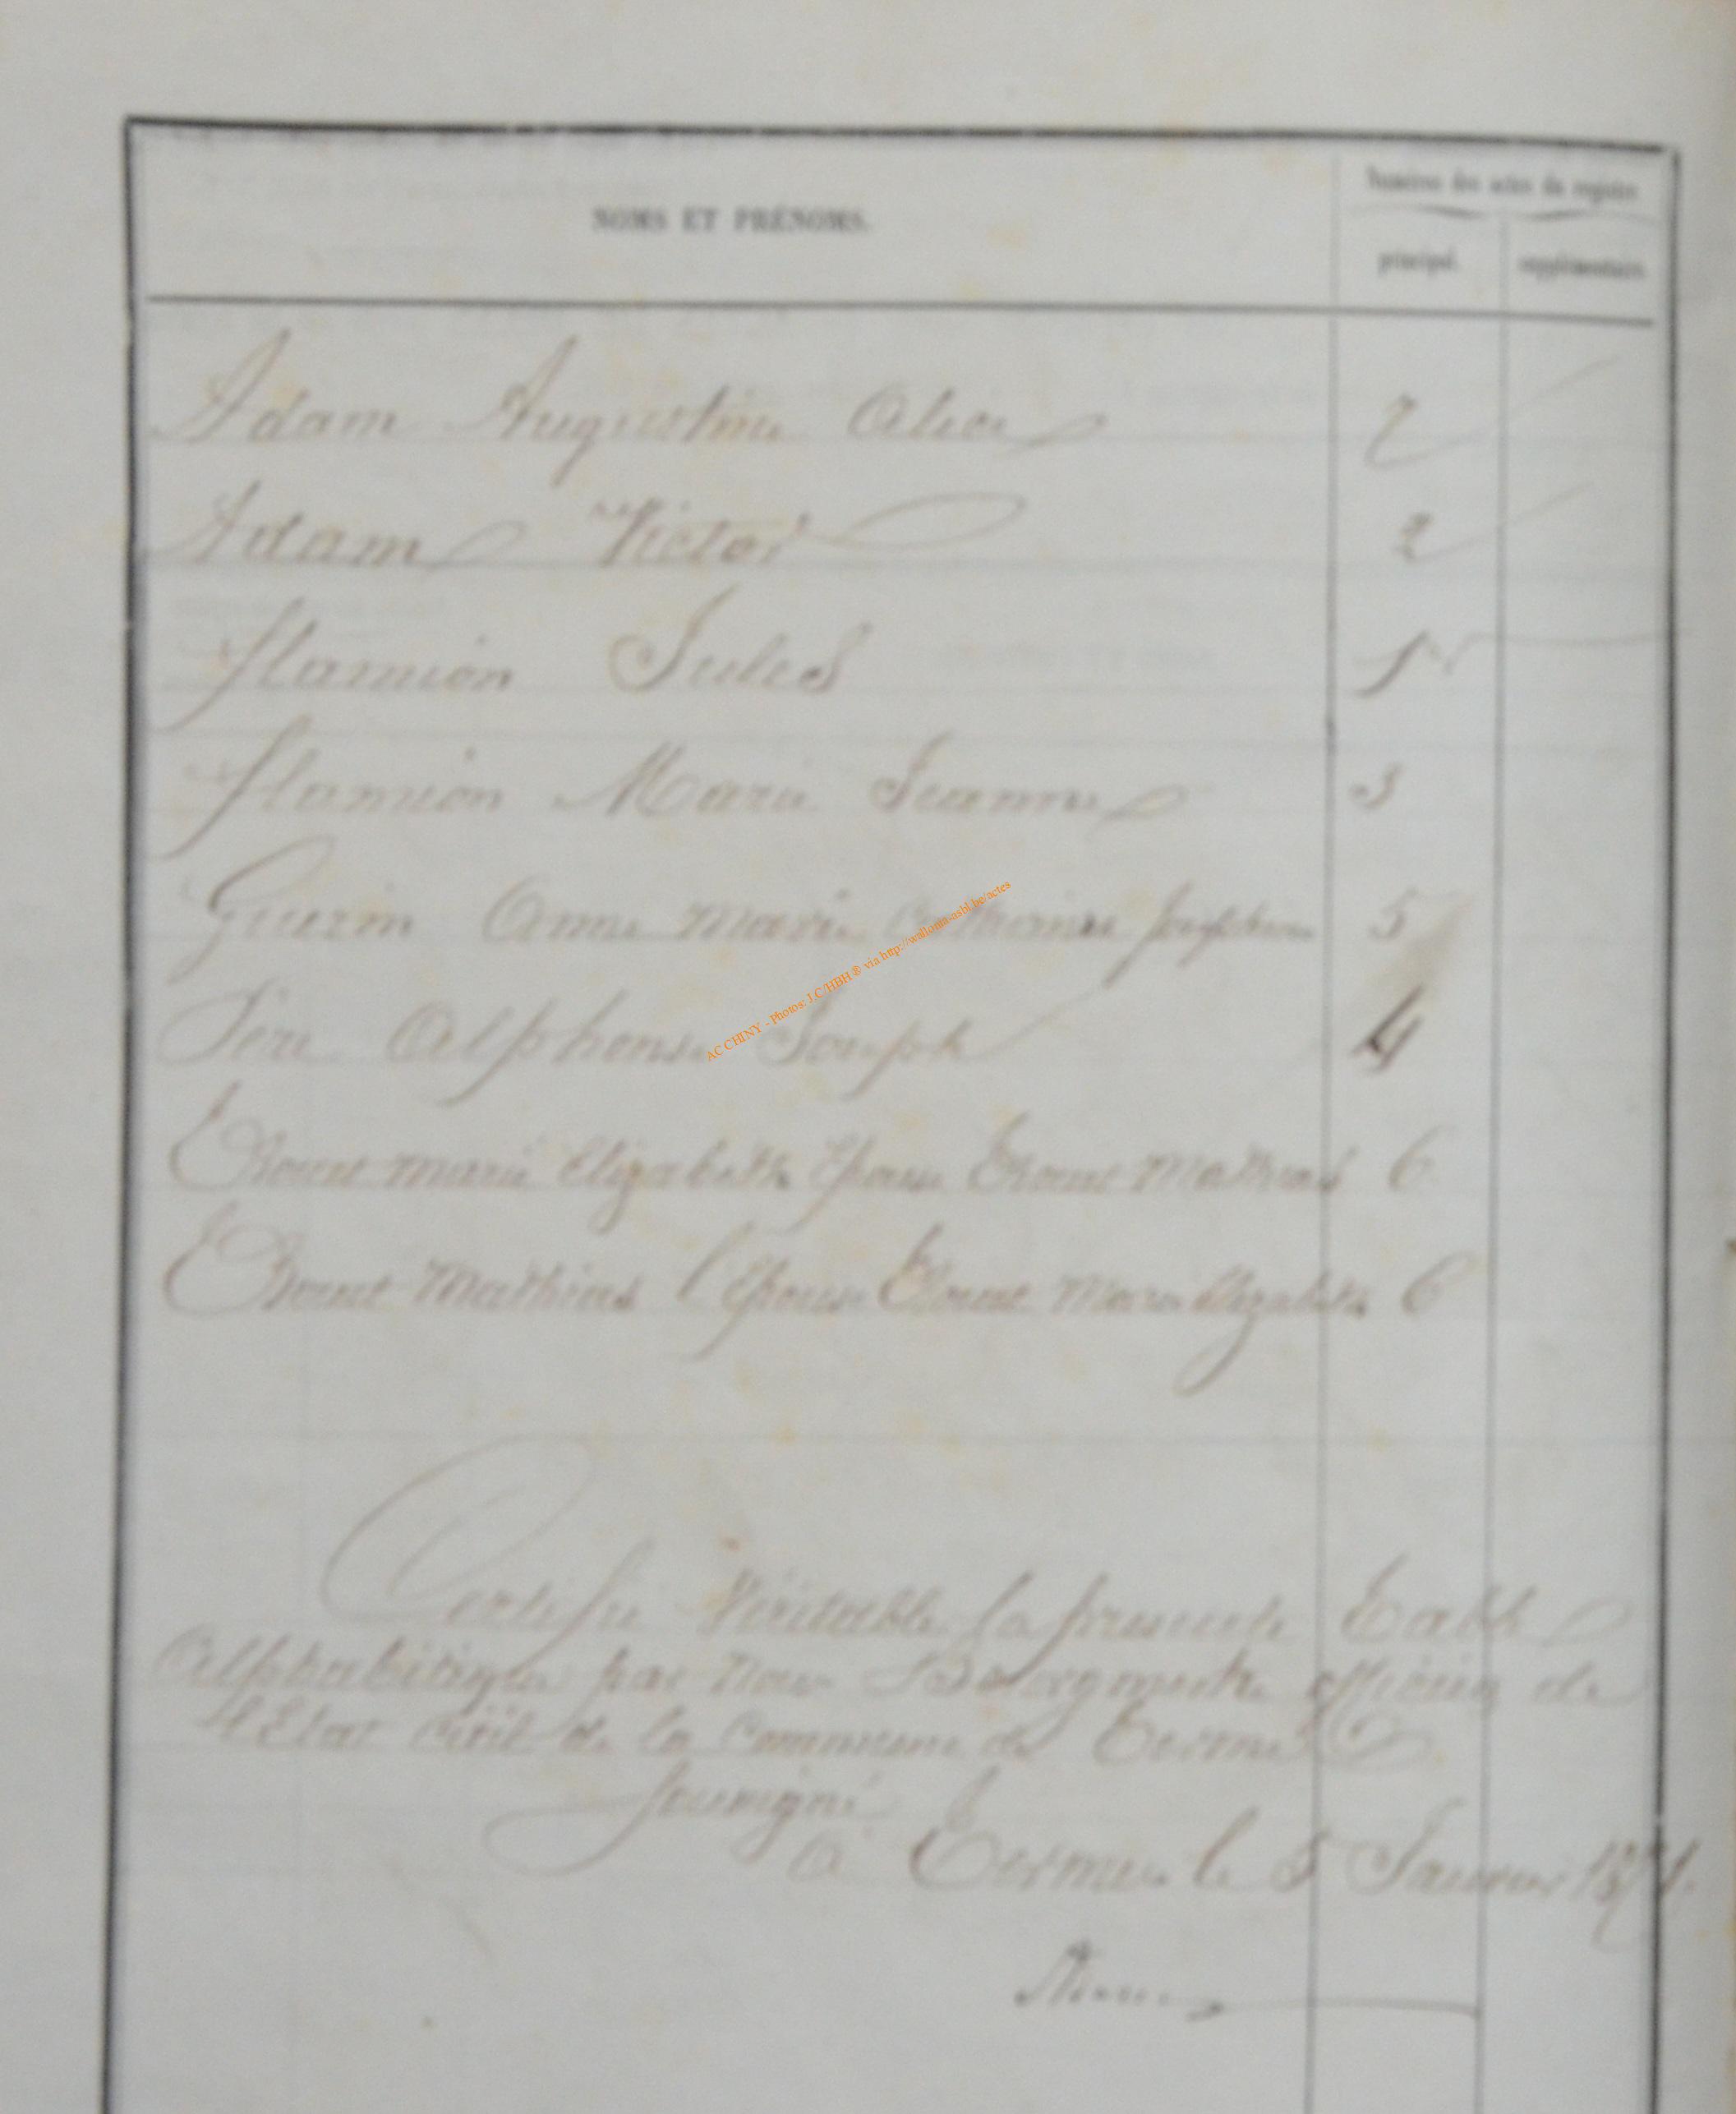 Numéros des actes du registre
NOMS ET PRÉNOMS.
principal. supplémentaire.
Adam Augustine Alice 7
Adam Victor 2
flamion Jules 1
flamion Marie Jeanne 3
Guerin Anne Marie Catherine Josephine 5
Alphonse Joseph 4
marie Elizabeth Epouse Mathias 6
Mathias Epouse Marie Elizabeth 6
Certifié Véritable la presente Table
Alphabétique par Nous Bourgmestre officier de
l'Etat Civil de la Commune de Termes
soussigné
A Termes le 5 Janvier 1871.
AC CHINY - Photos: J.C HBH ® via http://wallonia-asbl.be/actes